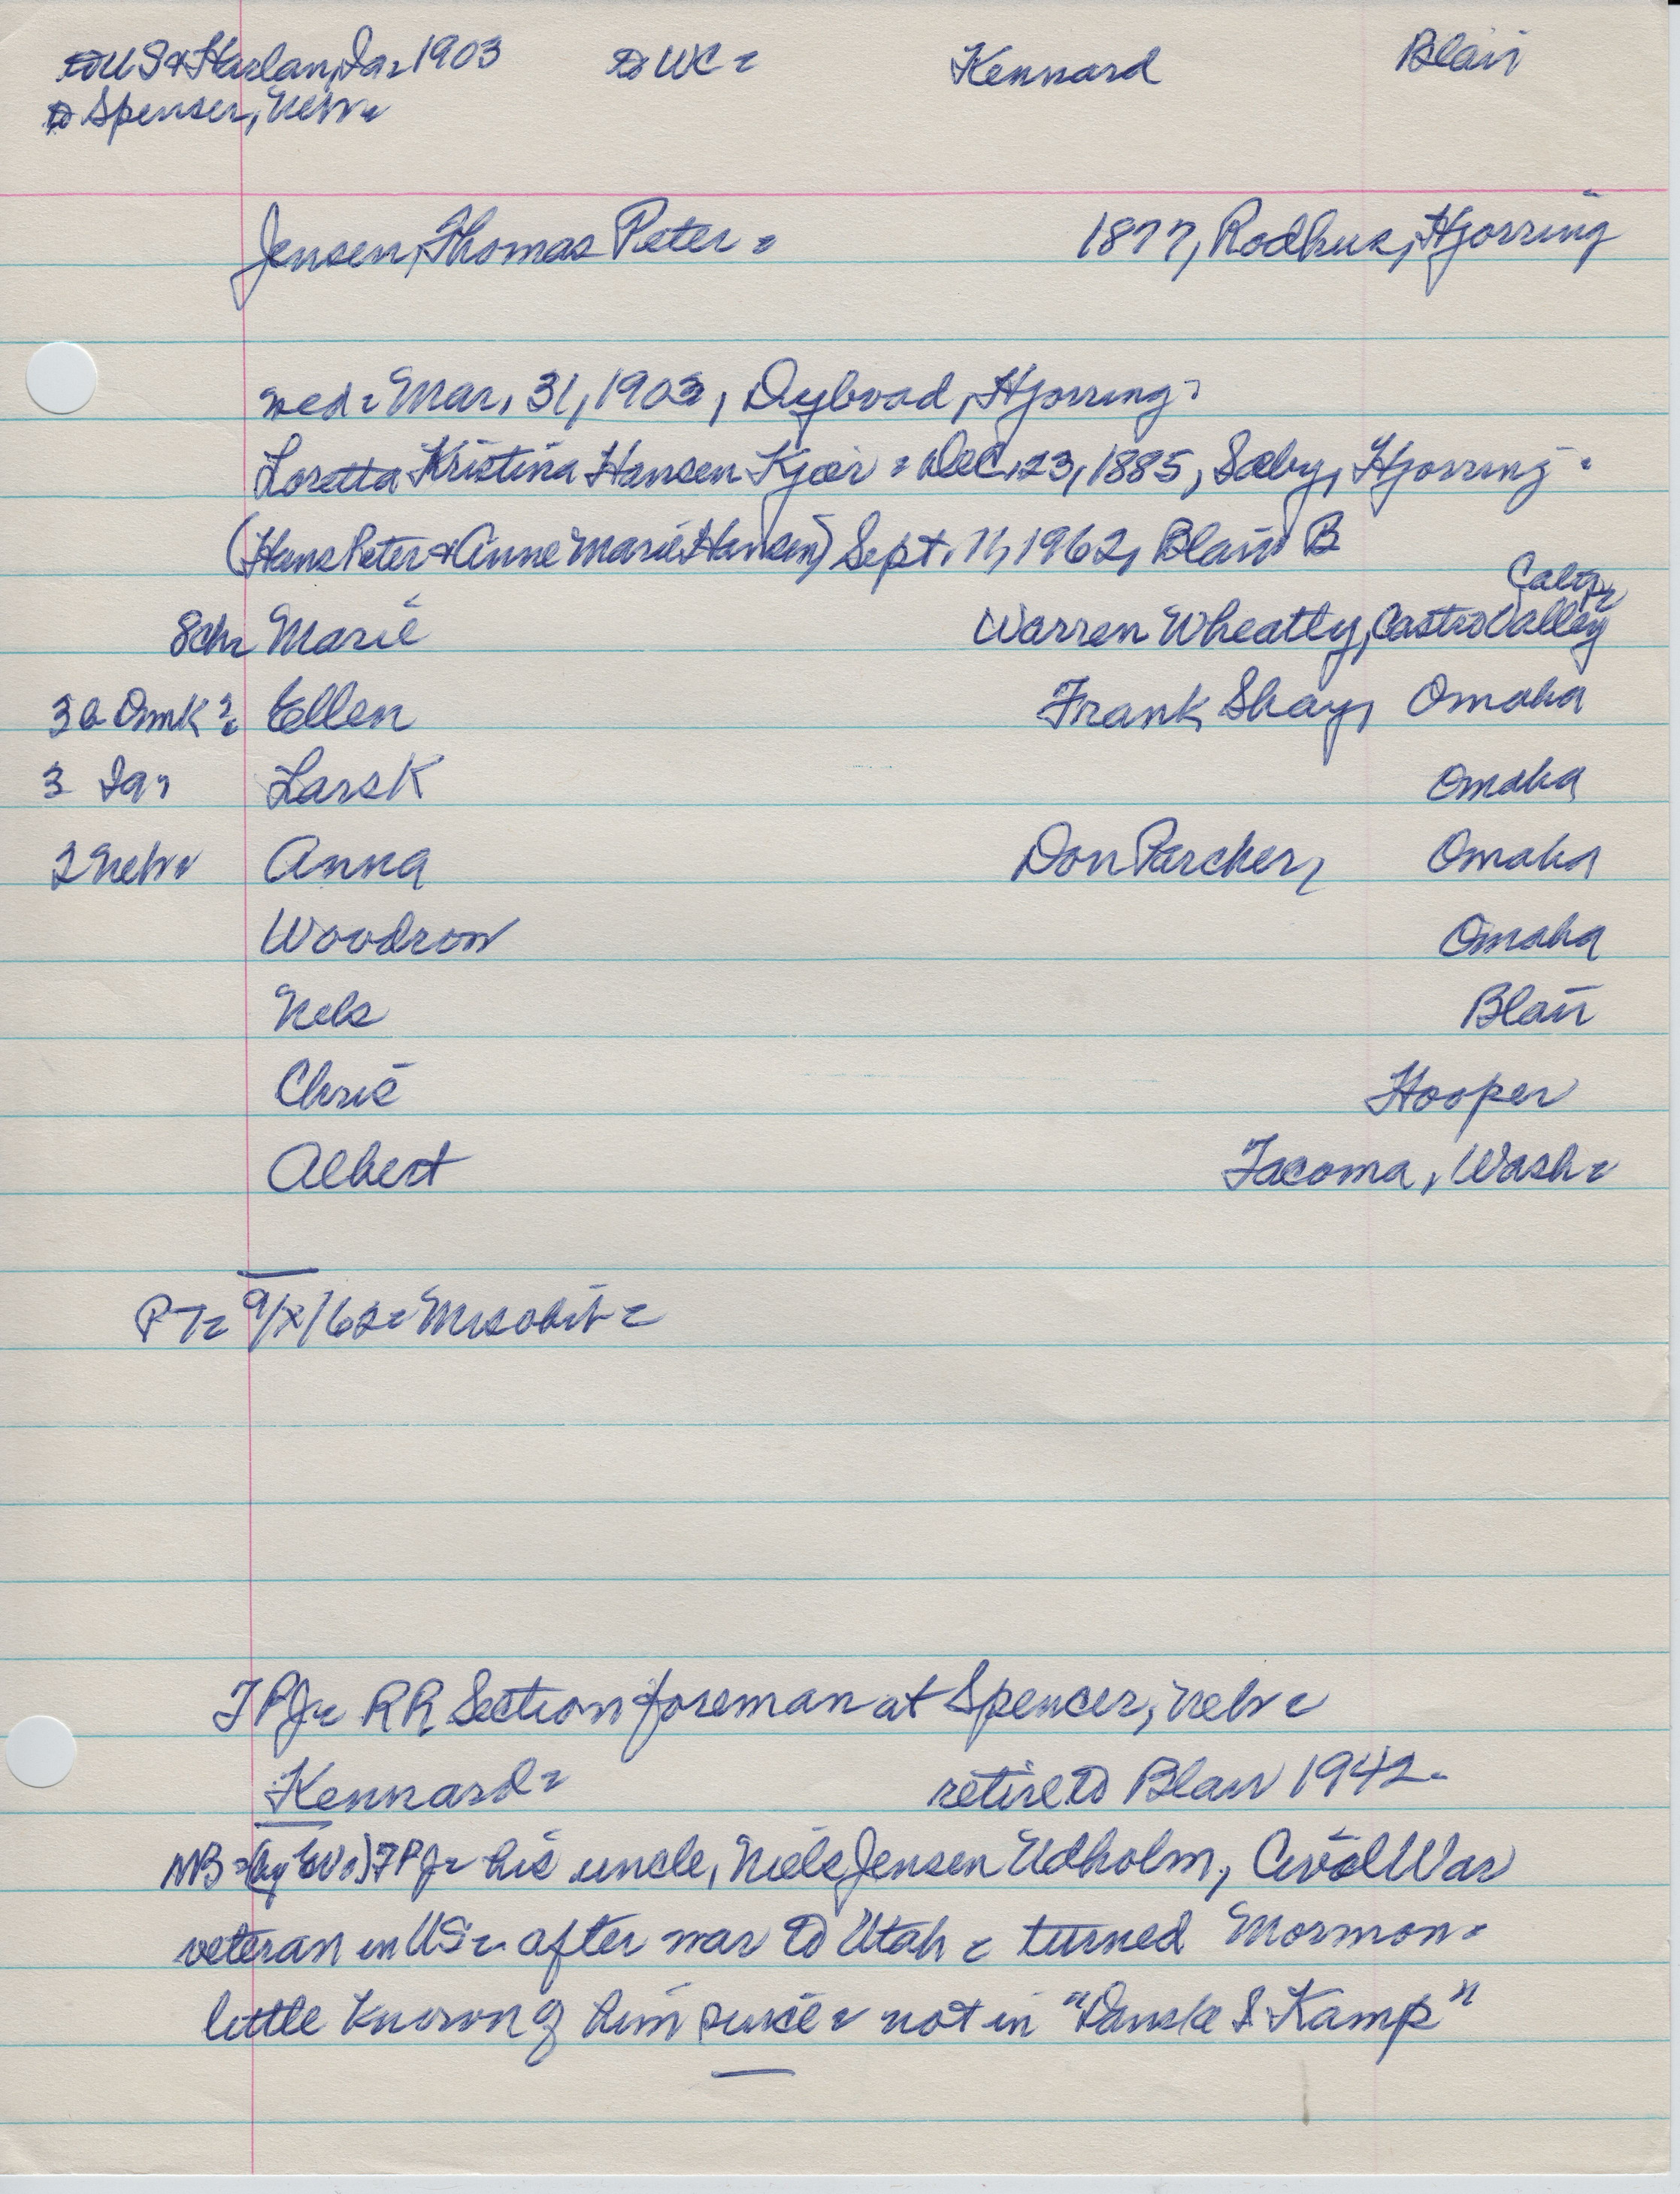 to US & Harlan, Ia. 1903 to WC. Kennard Blair
to Spenser, Nebr.
Jensen, Thomas Peter. 1877, Rodhus, Hjorring
wed. Mar. 31, 1903, Dybvad, Hjorring.
Loretta Kristina Hansen Kjær. Dec. 23, 1885, Sæby, Hjorring.
(Hans Peter & Anne Marie Hansen) Sept. 11, 1962, Blair B
Calif.
8ch. Marie Warren Wheatly, Castro Valley
3 Ellen Frank Shay, Omaha
3 Ia. Lars K Omaha
2 Nebr. Anna Don Parcher, Omaha
Woodrow Omaha
Nels Blair
Chris Hooper
Albert Tacoma, Wash.
PT. 9/ /62. Mrs obit.
TPJ. RR Section foreman at Spencer, Nebr.
Kennard. retire to Blair 1942.
NB. TPJ. his uncle, Niels Jensen Udholm, Civil War
veteran in US. after war to Utah. turned Mormon.
little known of him since. not in "Danske I Kamp"